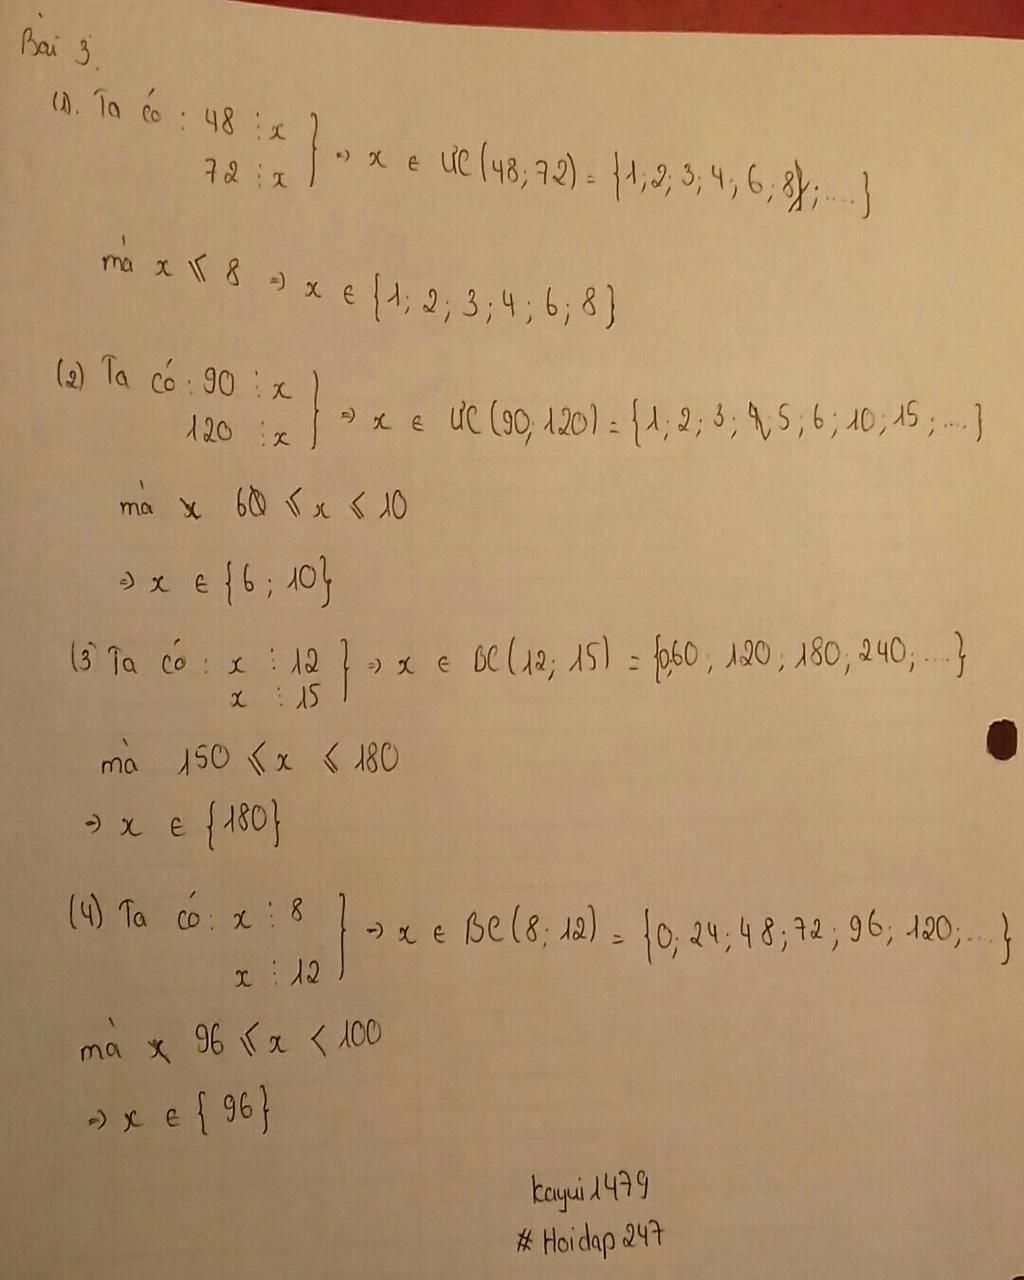 Bài 3.
(1). Ta có : 48 ⋮ x
72 ⋮ x } => x ∈ ƯC(48; 72) = {1; 2; 3; 4; 6; 8; ....}
mà x ⩽ 8 => x ∈ {1; 2; 3; 4; 6; 8}
(2) Ta có : 90 ⋮ x
120 ⋮ x } => x ∈ ƯC(90; 120) = {1; 2; 3; 5; 6; 10; 15; ....}
mà 6 ⩽ x ⩽ 10
=> x ∈ {6; 10}
(3) Ta có : x ⋮ 12
x ⋮ 15 } => x ∈ BC(12; 15) = {0; 60; 120; 180; 240; ....}
mà 150 ⩽ x ⩽ 180
=> x ∈ {180}
(4) Ta có : x ⋮ 8
x ⋮ 12 } => x ∈ BC(8; 12) = {0; 24; 48; 72; 96; 120; ....}
mà 96 ⩽ x < 100
=> x ∈ {96}
kayui1479
# Hoidap247